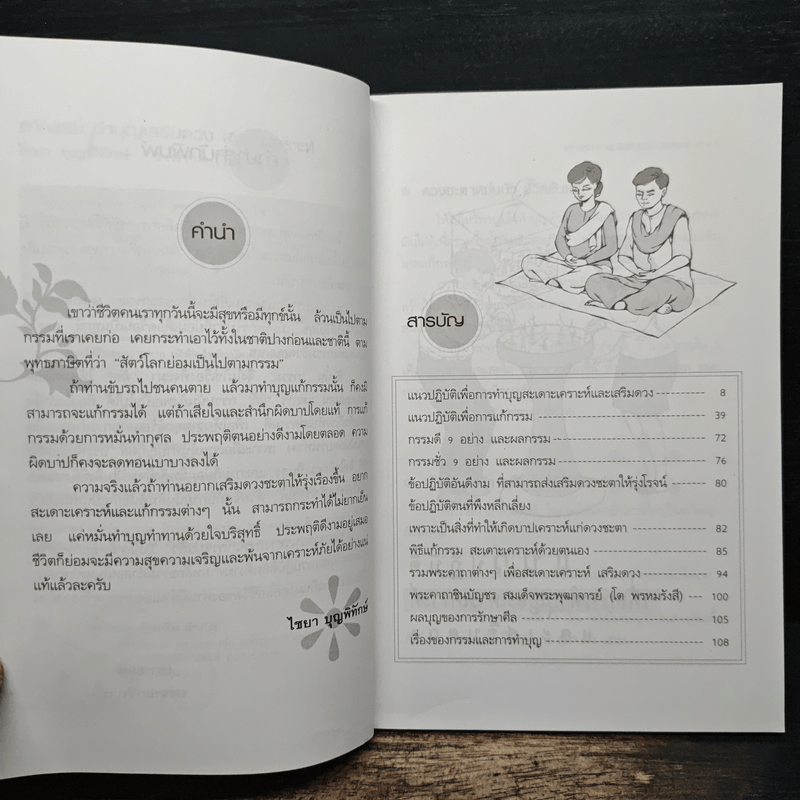 คำนำ
เขาว่าชีวิตคนเราทุกวันนี้จะมีสุขหรือมีทุกข์นั้น ล้วนเป็นไปตาม
กรรมที่เราเคยก่อ เคยกระทำเอาไว้ทั้งในชาติปางก่อนและชาตินี้ ตาม
พุทธภาษิตที่ว่า "สัตว์โลกย่อมเป็นไปตามกรรม"
ถ้าท่านขับรถไปชนคนตาย แล้วมาทำบุญแก้กรรมนั้น ก็คงมิ
สามารถจะแก้กรรมได้ แต่ถ้าเสียใจและสำนึกผิดบาปโดยแท้ การแก้
กรรมด้วยการหมั่นทำกุศล ประพฤติตนอย่างดีงามโดยตลอด ความ
ผิดบาปก็คงจะลดทอนเบาบางลงได้
ความจริงแล้วถ้าท่านอยากเสริมดวงชะตาให้รุ่งเรืองขึ้น อยาก
สะเดาะเคราะห์และแก้กรรมต่างๆ นั้น สามารถกระทำได้ไม่ยากเย็น
เลย แค่หมั่นทำบุญทำทานด้วยใจบริสุทธิ์ ประพฤติดีงามอยู่เสมอ
ชีวิตก็ย่อมจะมีความสุขความเจริญและพ้นจากเคราะห์ภัยได้อย่างแน่
แท้แล้วละครับ
ไชยา บุญพิทักษ์
สารบัญ
แนวปฏิบัติเพื่อการทำบุญสะเดาะเคราะห์และเสริมดวง ----------- 8
แนวปฏิบัติเพื่อการแก้กรรม ----------- 39
กรรมดี ๙ อย่าง และผลกรรม ----------- 72
กรรมชั่ว ๙ อย่าง และผลกรรม ----------- 76
ข้อปฏิบัติอันดีงาม ที่สามารถส่งเสริมดวงชะตาให้รุ่งโรจน์ --------- 80
ข้อปฏิบัติตนที่พึงหลีกเลี่ยง
เพราะเป็นสิ่งที่ทำให้เกิดบาปเคราะห์แก่ดวงชะตา ----------- 82
พิธีแก้กรรม สะเดาะเคราะห์ด้วยตนเอง ----------- 85
รวมพระคาถาต่างๆ เพื่อสะเดาะเคราะห์ เสริมดวง ----------- 94
พระคาถาชินบัญชร สมเด็จพระพุฒาจารย์ (โต พรหมรังสี) --- 100
ผลบุญของการรักษาศีล ----------- 105
เรื่องของกรรมและการทำบุญ ----------- 108